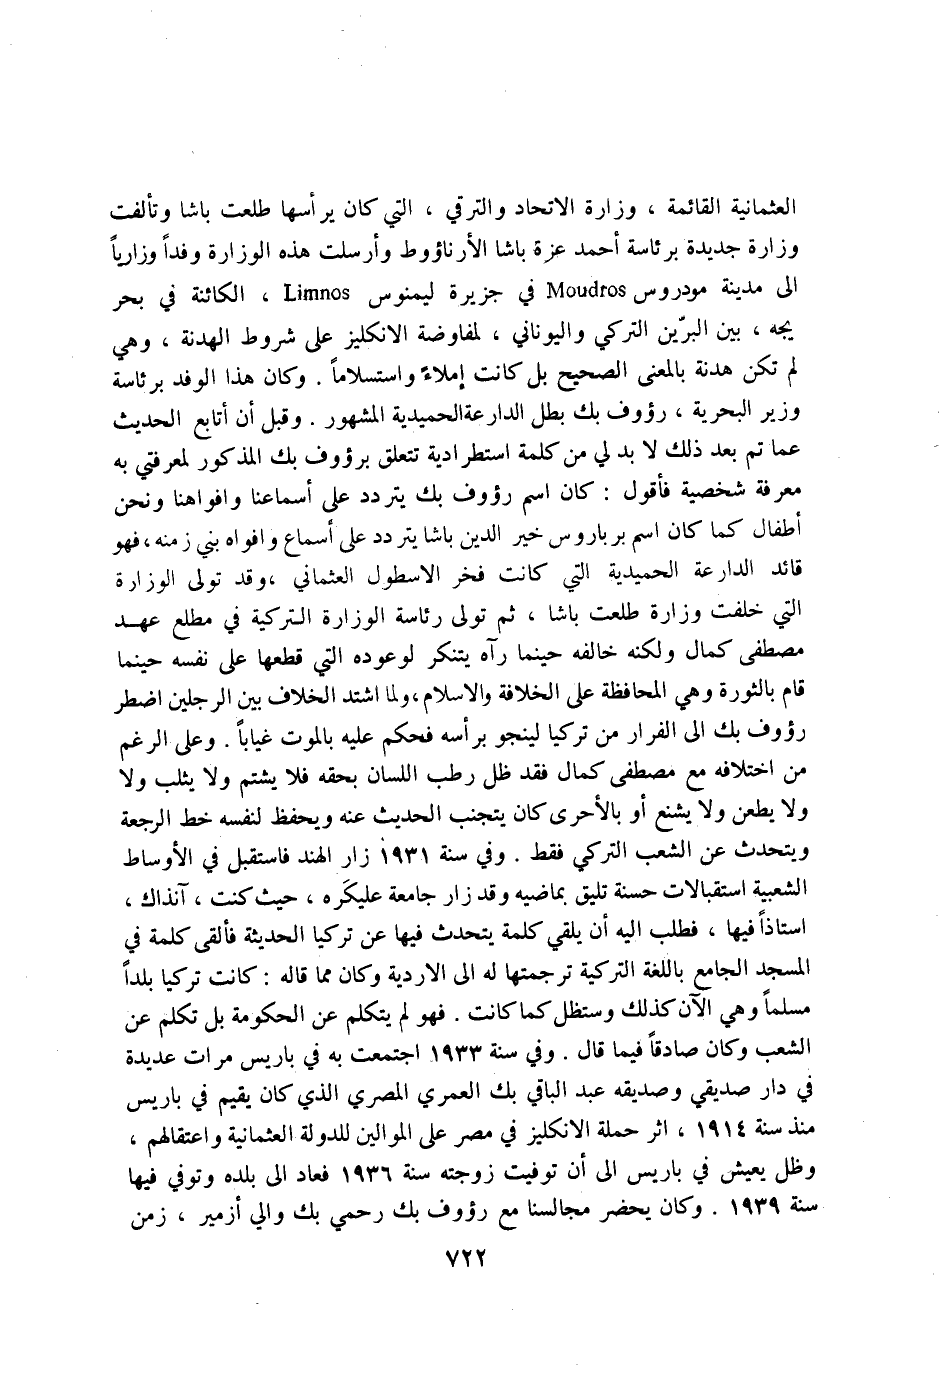 العثمانية القائمة ، وزارة الاتحاد والترقي ، التي كان يرأسها طلعت باشا وتألفت
وزارة جديدة برئاسة أحمد عزة باشا الأرناؤوط وأرسلت هذه الوزارة وفداً وزارياً
الى مدينة مودروس Moudros في جزيرة ليمنوس Limnos ، الكائنة في بحر
يجه ، بين البرّين التركي واليوناني ، لمفاوضة الانكليز على شروط الهدنة ، وهي
لم تكن هدنة بالمعنى الصحيح بل كانت إملاءً واستسلاماً . وكان هذا الوفد برئاسة
وزير البحرية ، رؤوف بك بطل الدارعة الحميدية المشهور . وقبل أن أتابع الحديث
عما تم بعد ذلك لا بد لي من كلمة استطرادية تتعلق برؤوف بك المذكور لمعرفتي به
معرفة شخصية فأقول : كان اسم رؤوف بك يتردد على أسماعنا وافواهنا ونحن
أطفال كما كان اسم برباروس خير الدين باشا يتردد على أسماع وافواه بني زمنه ، فهو
قائد الدارعة الحميدية التي كانت فخر الاسطول العثماني ، وقد تولى الوزارة
التي خلفت وزارة طلعت باشا ، ثم تولى رئاسة الوزارة التركية في مطلع عهد
مصطفى كمال ولكنه خالفه حينما رآه يتنكر لوعوده التي قطعها على نفسه حينما
قام بالثورة وهي المحافظة على الخلافة والاسلام ، ولما اشتد الخلاف بين الرجلين اضطر
رؤوف بك الى الفرار من تركيا لينجو برأسه فحكم عليه بالموت غياباً . وعلى الرغم
من اختلافه مع مصطفى كمال فقد ظل رطب اللسان بحقه فلا يشتم ولا يثلب ولا
ولا يطعن ولا يشنع أو بالأحرى كان يتجنب الحديث عنه ويحفظ لنفسه خط الرجعة
ويتحدث عن الشعب التركي فقط . وفي سنة ١٩٣١ زار الهند فاستقبل في الأوساط
الشعبية استقبالات حسنة تليق بماضيه وقد زار جامعة عليكَره ، حيث كنت ، آنذاك ،
استاذاً فيها ، فطلب اليه أن يلقي كلمة يتحدث فيها عن تركيا الحديثة فألقى كلمة في
المسجد الجامع باللغة التركية ترجمتها له الى الاردية وكان مما قاله : كانت تركيا بلداً
مسلماً وهي الآن كذلك وستظل كما كانت . فهو لم يتكلم عن الحكومة بل تكلم عن
الشعب وكان صادقاً فيما قال . وفي سنة ١٩٣٣ اجتمعت به في باريس مرات عديدة
في دار صديقي وصديقه عبد الباقي بك العمري المصري الذي كان يقيم في باريس
منذ سنة ١٩١٤ ، اثر حملة الانكليز في مصر على الموالين للدولة العثمانية واعتقالهم ،
وظل يعيش في باريس الى أن توفيت زوجته سنة ١٩٣٦ فعاد الى بلده وتوفي فيها
سنة ١٩٣٩ . وكان يحضر مجالسنا مع رؤوف بك رحمي بك والي أزمير ، زمن
٧٢٢